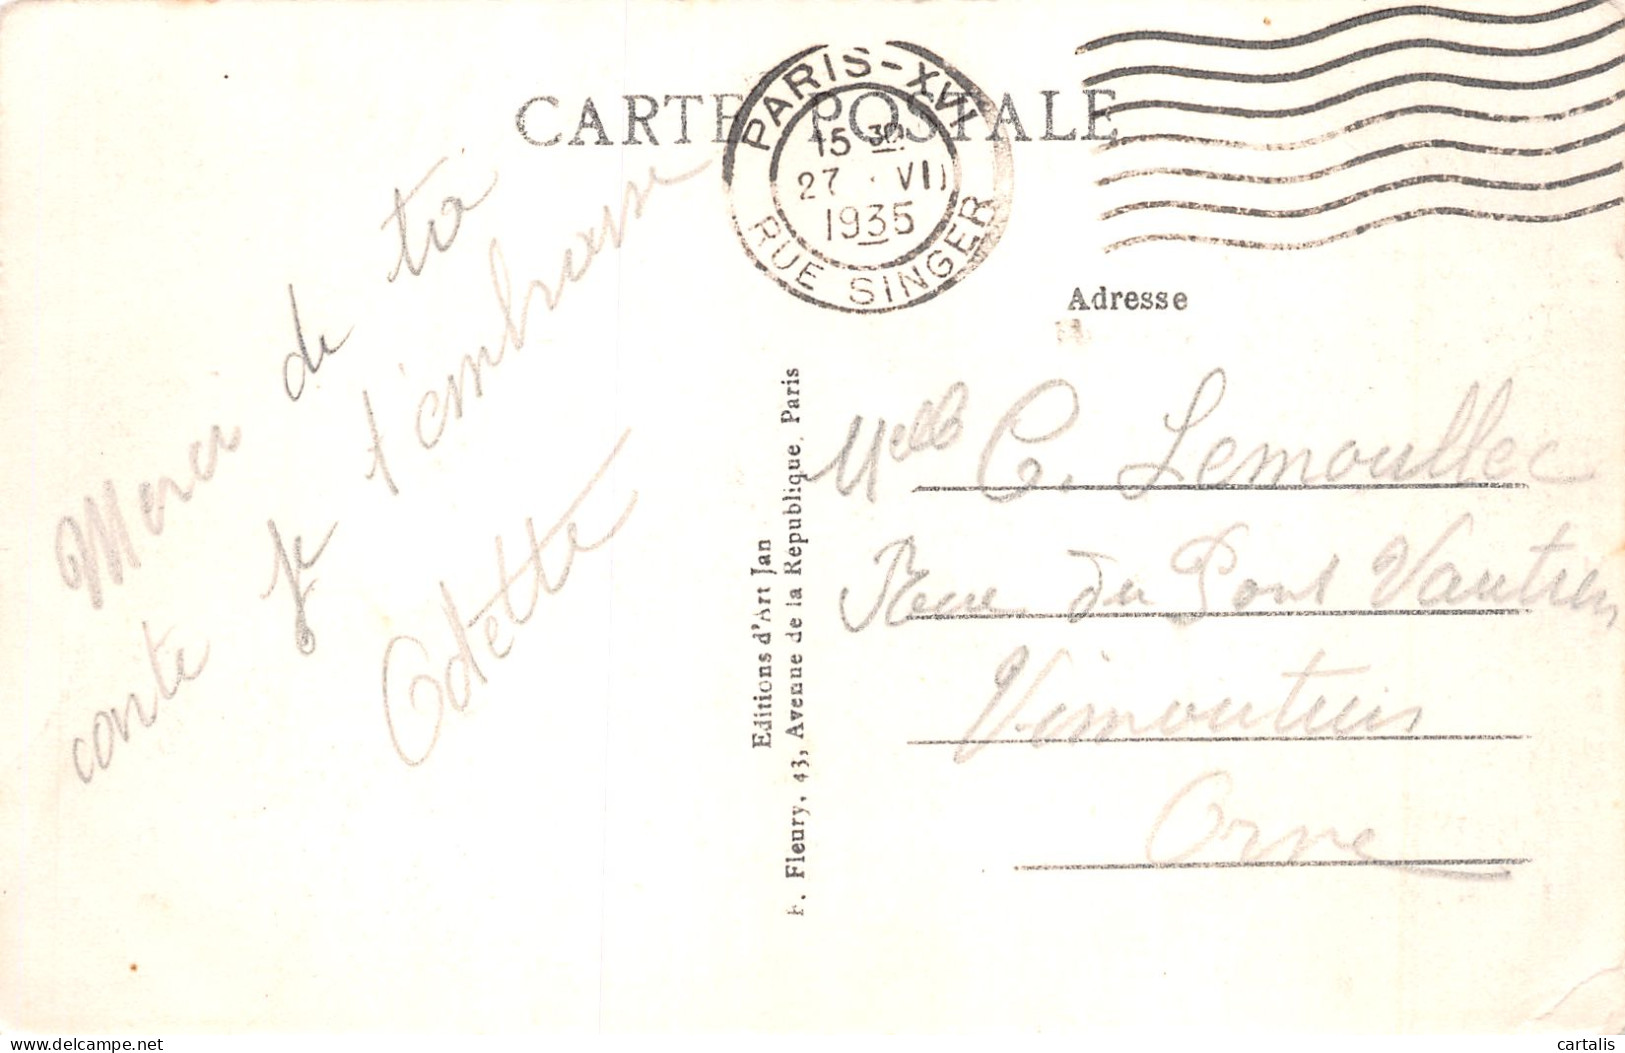 CARTE POSTALE
PARIS-XVI
15 30
27 . VII
1935
RUE SINGER
Merci de ta
carte je t'embrasse
Odette
Editions d'Art Jan
F. Fleury, 43, Avenue de la République, Paris
Adresse
Melle C. Lemoullec
Rue du Pont Vautier
Vimoutiers
Orne
cartalis
delcampe.net